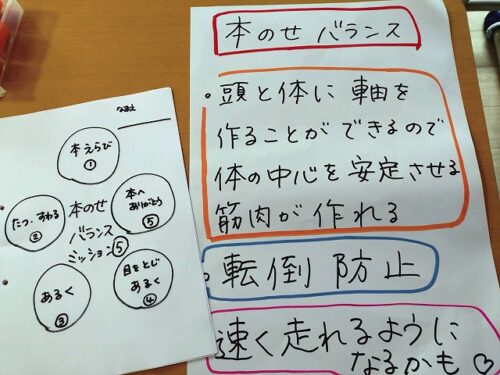 なまえ
本えらび
①
たつ・すわる
②
本のせ
バランス
ミッション⑤
本へ
ありがとう
⑤
あるく
③
目をとじ
あるく
④
本のせ バランス
。頭と体に 軸を
作ることが できるので
体の中心を安定させる
筋肉が 作れる
。転倒 防止
速く走れるように
なるかも♡